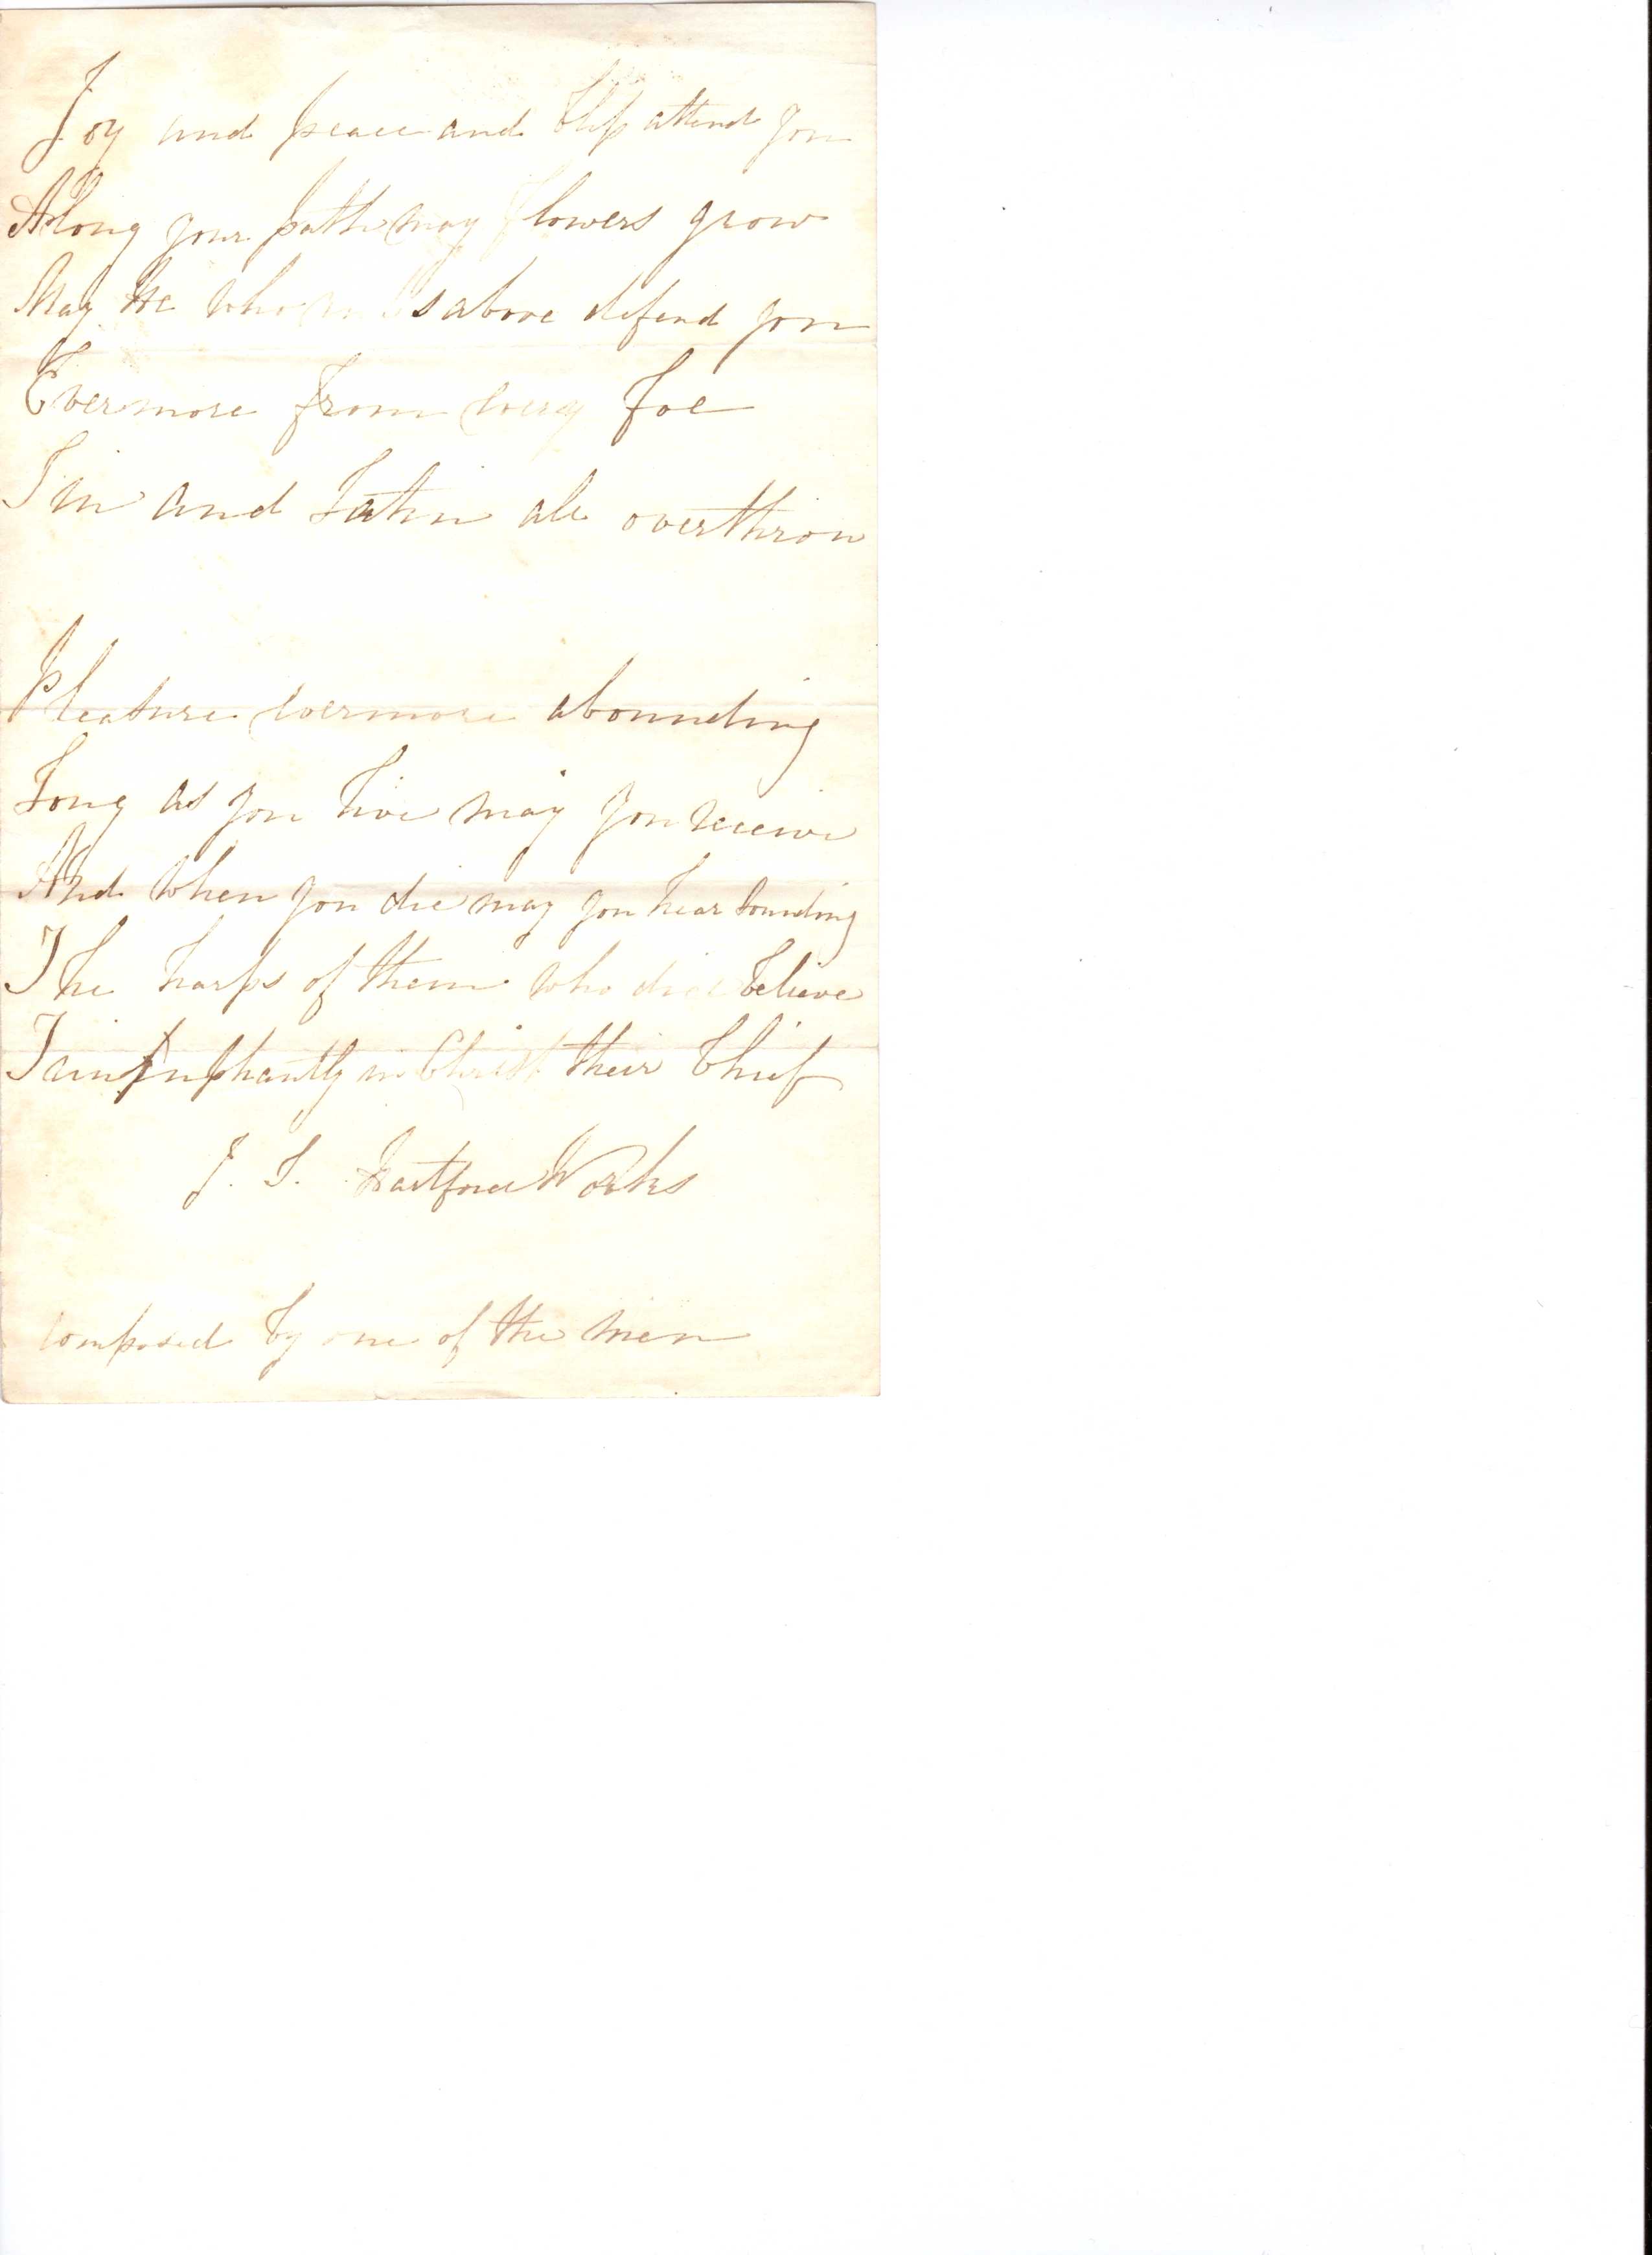 Joy and peace and bliss attend you
Along your path may flowers grow
May He who rules above defend you
Evermore from every Foe
Sin and Satin all overthrow
Pleasure evermore abounding
Long as you live may you receive
And when you die may you hear sounding
The harps of them who did believe
in Christ their Chief
J. S. Works
composed by one of the men